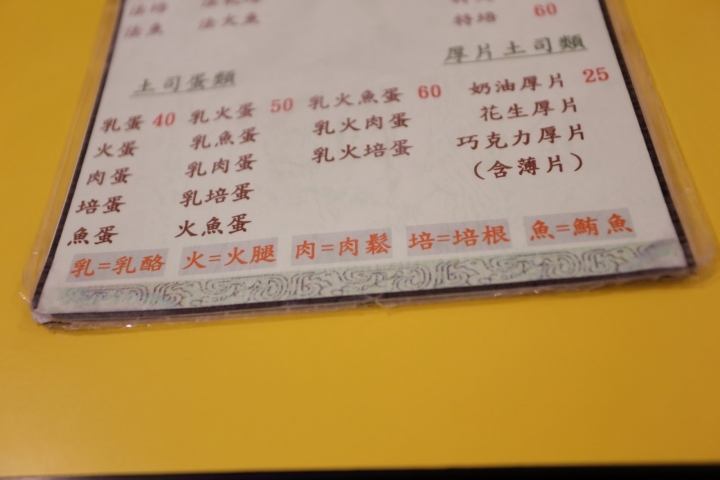 法魚 法火魚
特培 60
厚片土司類
奶油厚片 25
花生厚片
巧克力厚片
(含薄片)
土司蛋類
乳蛋 40 乳火蛋 50 乳火魚蛋 60
火蛋 乳魚蛋 乳火肉蛋
肉蛋 乳肉蛋 乳火培蛋
培蛋 乳培蛋
魚蛋 火魚蛋
乳=乳酪 火=火腿 肉=肉鬆 培=培根 魚=鮪魚